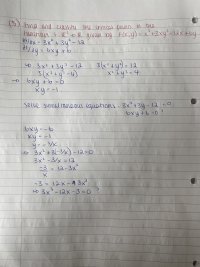 (3) Find and classify the critical points of the
function f: R² → R given by f(x,y) = x³+3xy²-12x+6y
∂f/∂x = 3x² + 3y² - 12
∂f/∂y = 6xy + 6
⇒ 3x² + 3y² = 12      3(x²+y²) = 12
3(x²+y²-4)      x²+y² = 4
→ 6xy + 6 = 0
xy = -1
Solve simultaneous equations 3x²+3y-12=0
6xy+6=0
6xy = -6
xy = -1
y = -1/x
⇒ 3x² + 3(-1/x) - 12 = 0
3x² - 3/x = 12
-3/x = 12 - 3x²
-3 = 12x - 3x³
⇒ 3x³ - 12x - 3 = 0